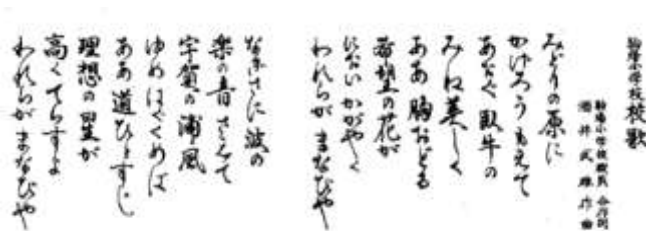 駒場小学校校歌
駒場小学校職員 合作詞
酒井武雄作曲
みどりの原に
かげろうもえて
あおぐ臥牛の
みね美しく
ああ胸おどる
希望の花が
におい かがやく
われらが まなびや
なぎさに波の
楽の音さえて
宇賀の浦風
ゆめはぐくめば
ああ道ひとすじ
理想の星が
高くてらすよ
われらが まなびや